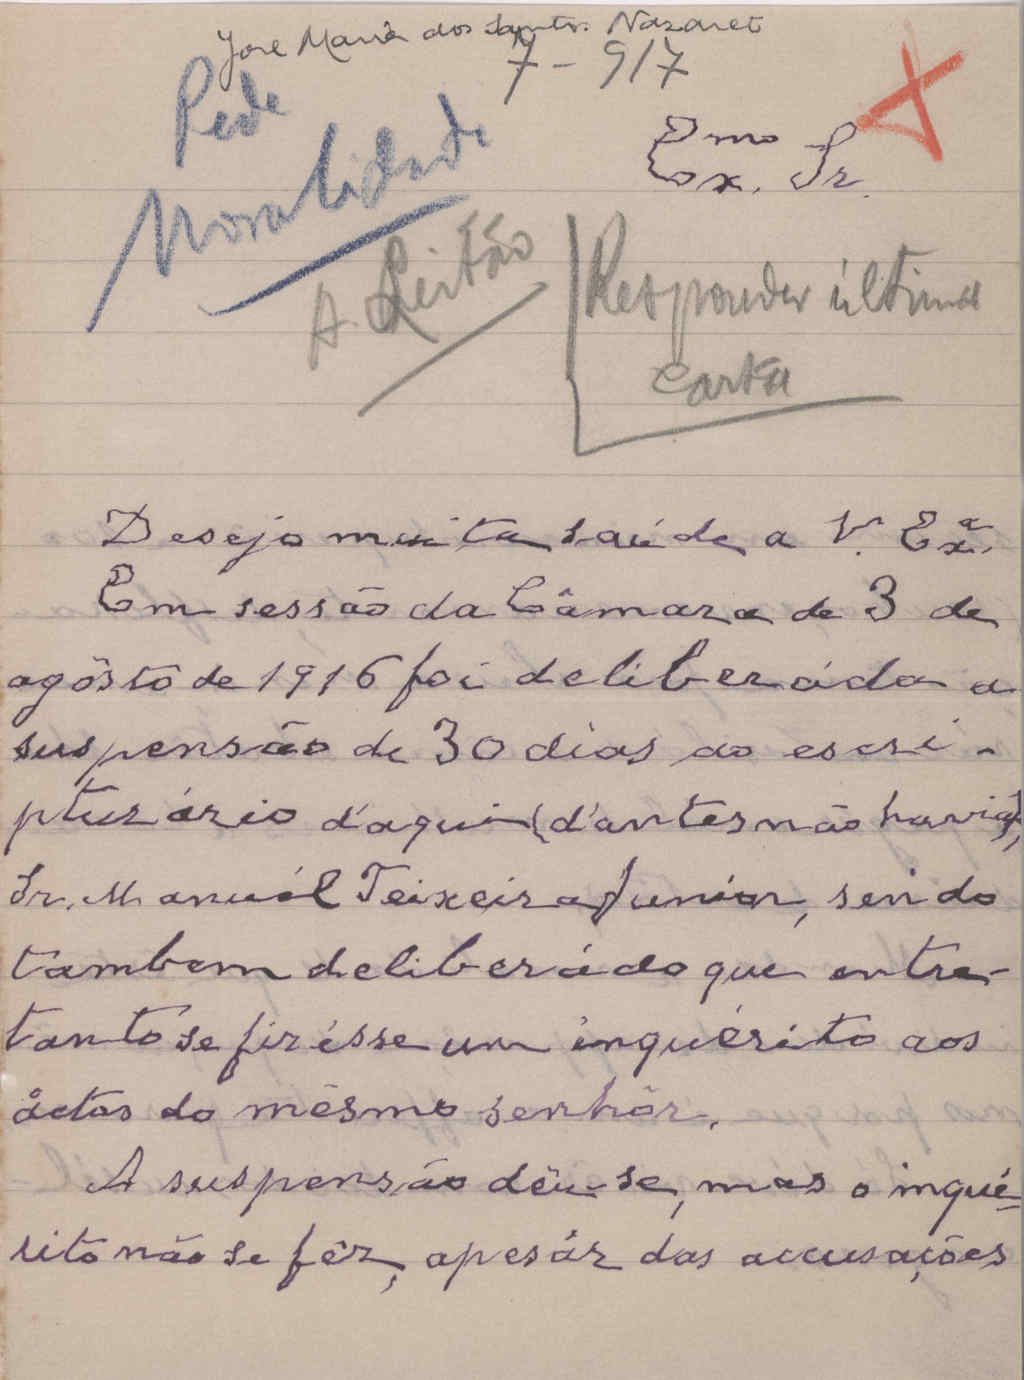 José Maria dos Santos Nazaret
7-917
Pede
Moralidade
Exmo. Sr.
A. Leitão
Responder última
carta
Desejo muita saúde a V. Exª.
Em sessão da Câmara de 3 de
agôsto de 1916 foi deliberáda a
suspensão de 30 dias ao escri-
pturário d'aqui (d'antes não havia),
Sr. Manuél Teixeira Junior, sendo
tambem deliberádo que entre-
tanto se fizésse um inquérito aos
áctos do mêsmo senhôr.
A suspensão dêu-se, mas o inqué-
rito não se fêz, apesár das accusações